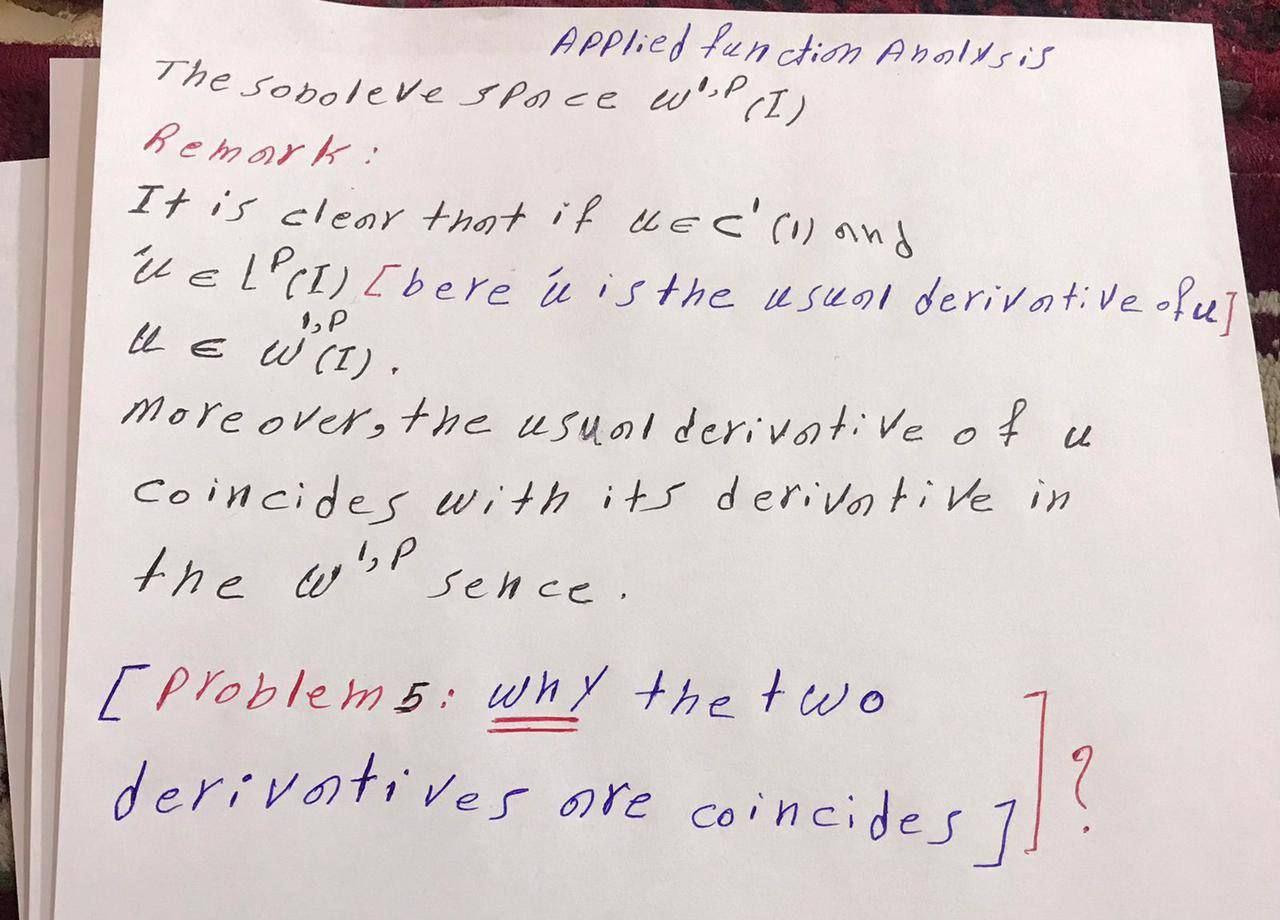 Applied function Analysis
The soboleve space W¹,ᴾ(I)
Remark:
It is clear that if u ∈ C¹(I) and
u' ∈ Lᴾ(I) [bere u' is the usual derivative of u]
u ∈ W¹,ᴾ(I).
moreover, the usual derivative of u
coincides with its derivative in
the W¹,ᴾ sence.
[Problem 5: why the two
derivatives are coincides]]?